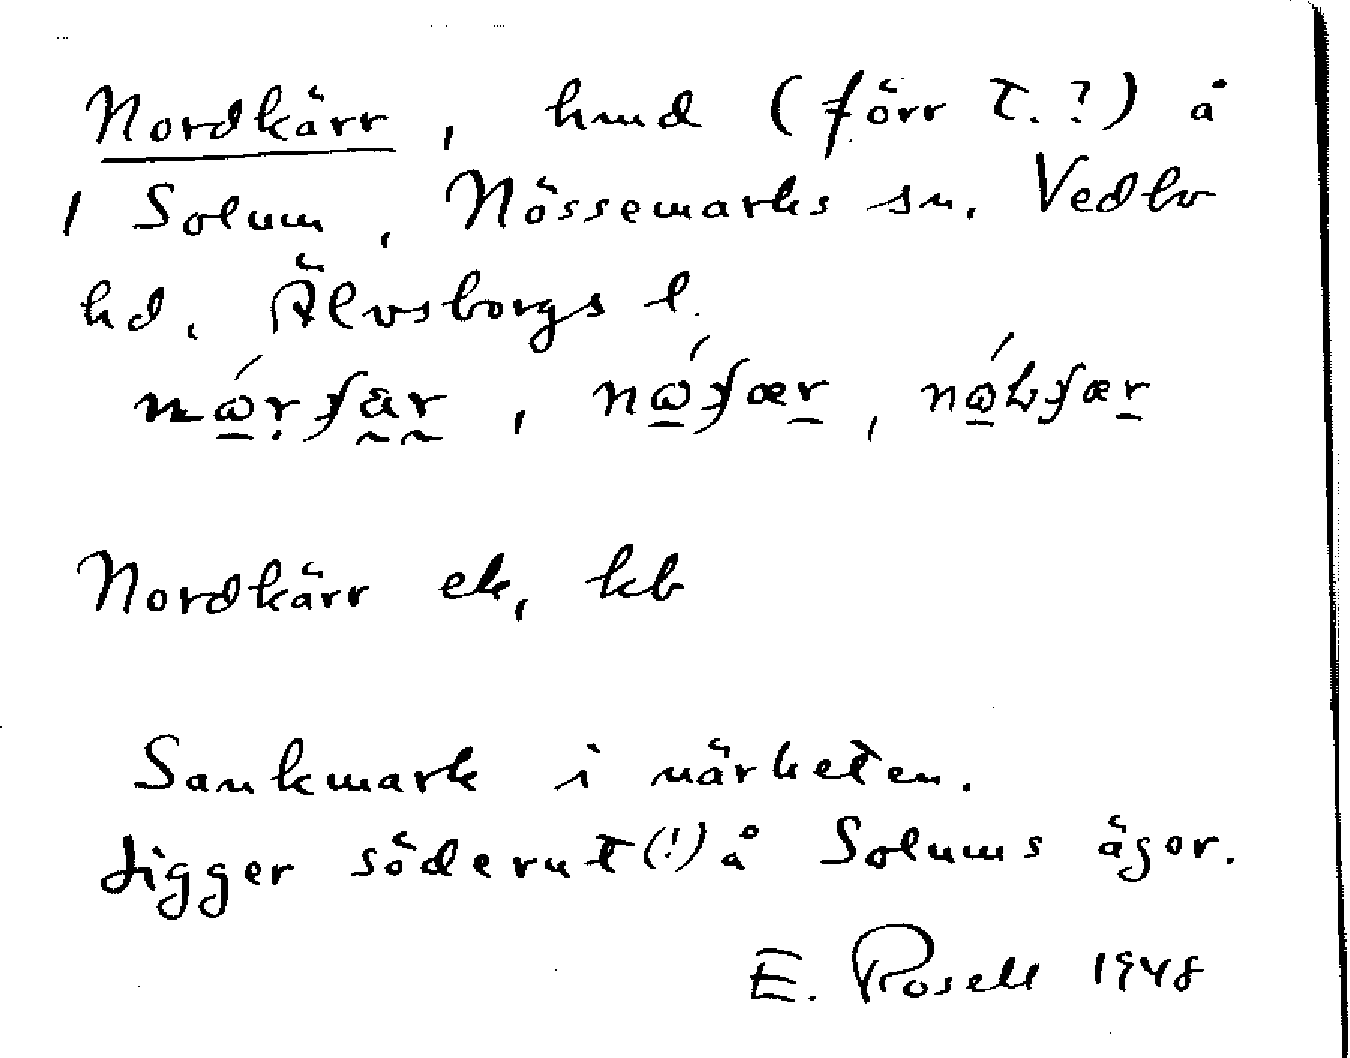 Nordkärr, hmd (förr t.?) å
1 Solum, Nössemarks sn. Vedbo
hd. Älvsborgs l.
Nordkärr ek, kb
Sankmark i närheten.
Ligger söderut (!) å Solums ägor.
E. Rosell 1948